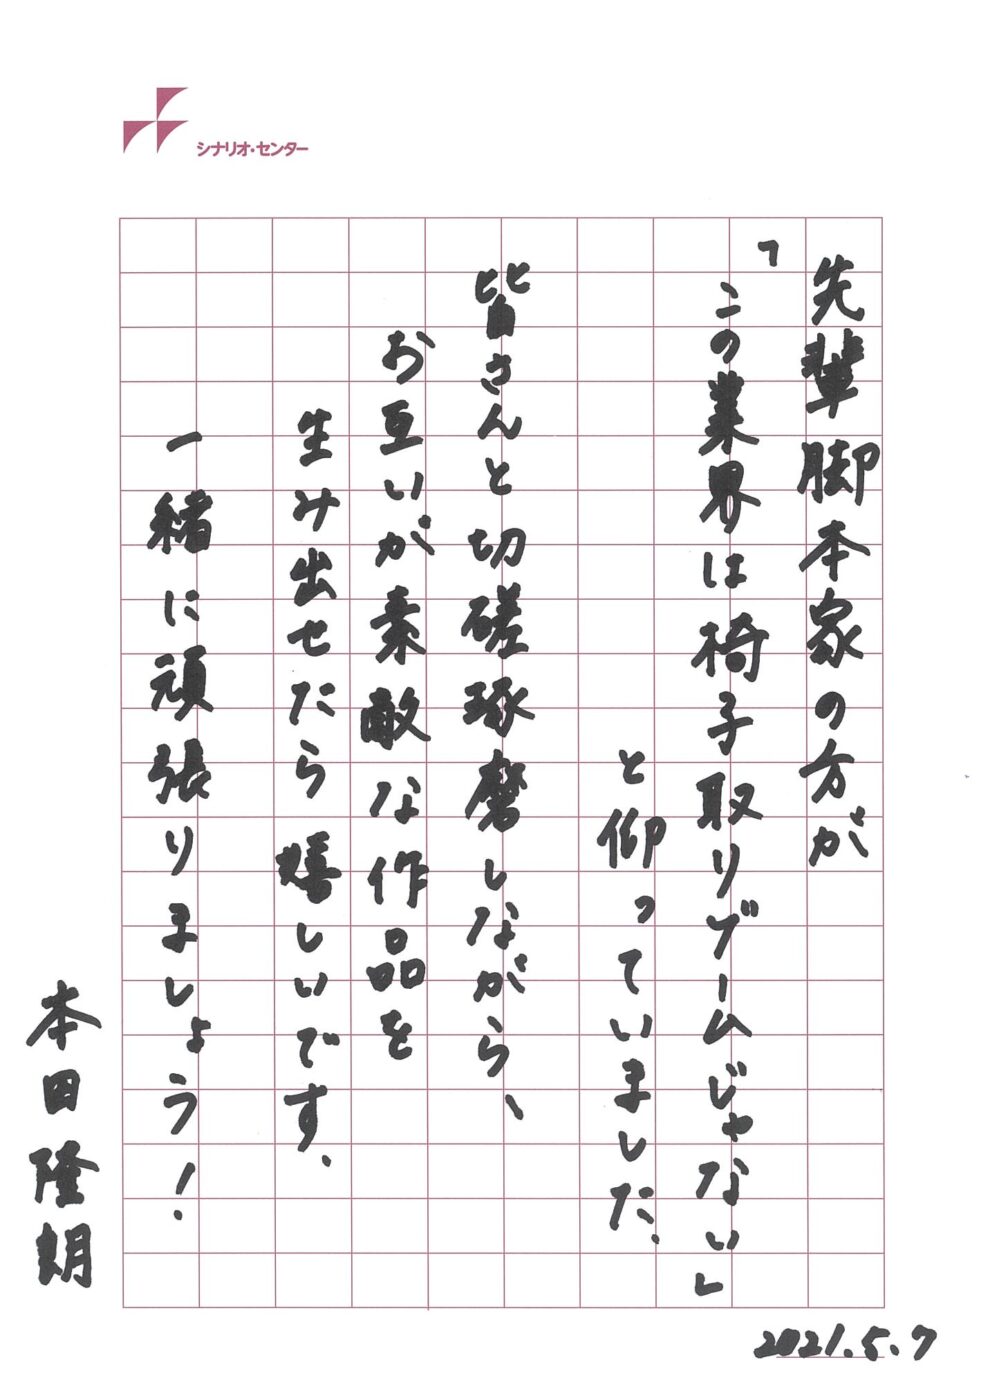 シナリオ・センター
先輩脚本家の方が
「この業界は椅子取りゲームじゃない」
と仰っていました。
皆さんと切磋琢磨しながら、
お互いが素敵な作品を
生み出せたら嬉しいです。
一緒に頑張りましょう！
本田隆朗
2021.5.7